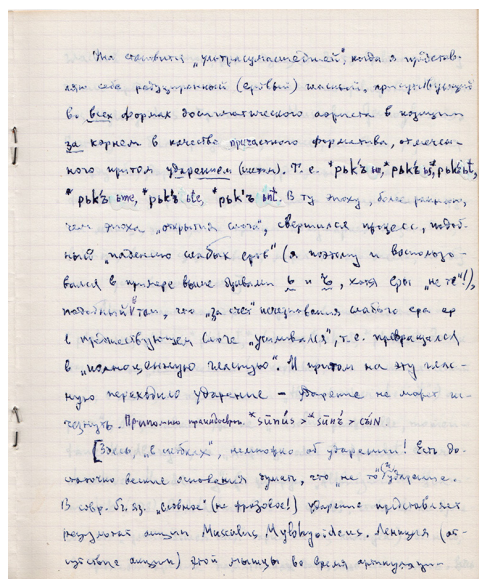 Она становится „ультрасумасшедшей“, когда я представ-
ляю себе редуцированный (еровый) гласный,
во всех формах аориста в позиции
за корнем в качестве причастного форманта, отмечен-
ного притом ударением (иктом). Т. е. *рьк'ъ
*рьк'ъ *рьк'ъ ete, *рьк'ъ В ту эпоху, более раннюю,
чем эпоха „открытия слога“, свершился процесс, подоб-
ный „падению слабых еров“ (я поэтому и воспользо-
вался в примере выше буквами ь и ъ, хотя еры „не те“!),
подобный в том, что „за счёт“ исчезнования слабого ера ер
в предшествующем слоге „усиливался“, т. е. превращался
в „полноценную гласную“. И притом на эту глас-
ную переходило ударение – ударение не может ис-
чезнуть. Припомню *sūnŭs > *sūnъ > сы́н
[Здесь, „в скобках“, немножко об ударении! Есть до-
статочно веские основания думать, что „не то“ ударение.
В совр. бъ. яз. „словное“ (не фразовое!) ударение представляет
результат акции Musculus Mylohyoideus. Акция (от-
сутствие акции) этой мышцы во время артикуляци-